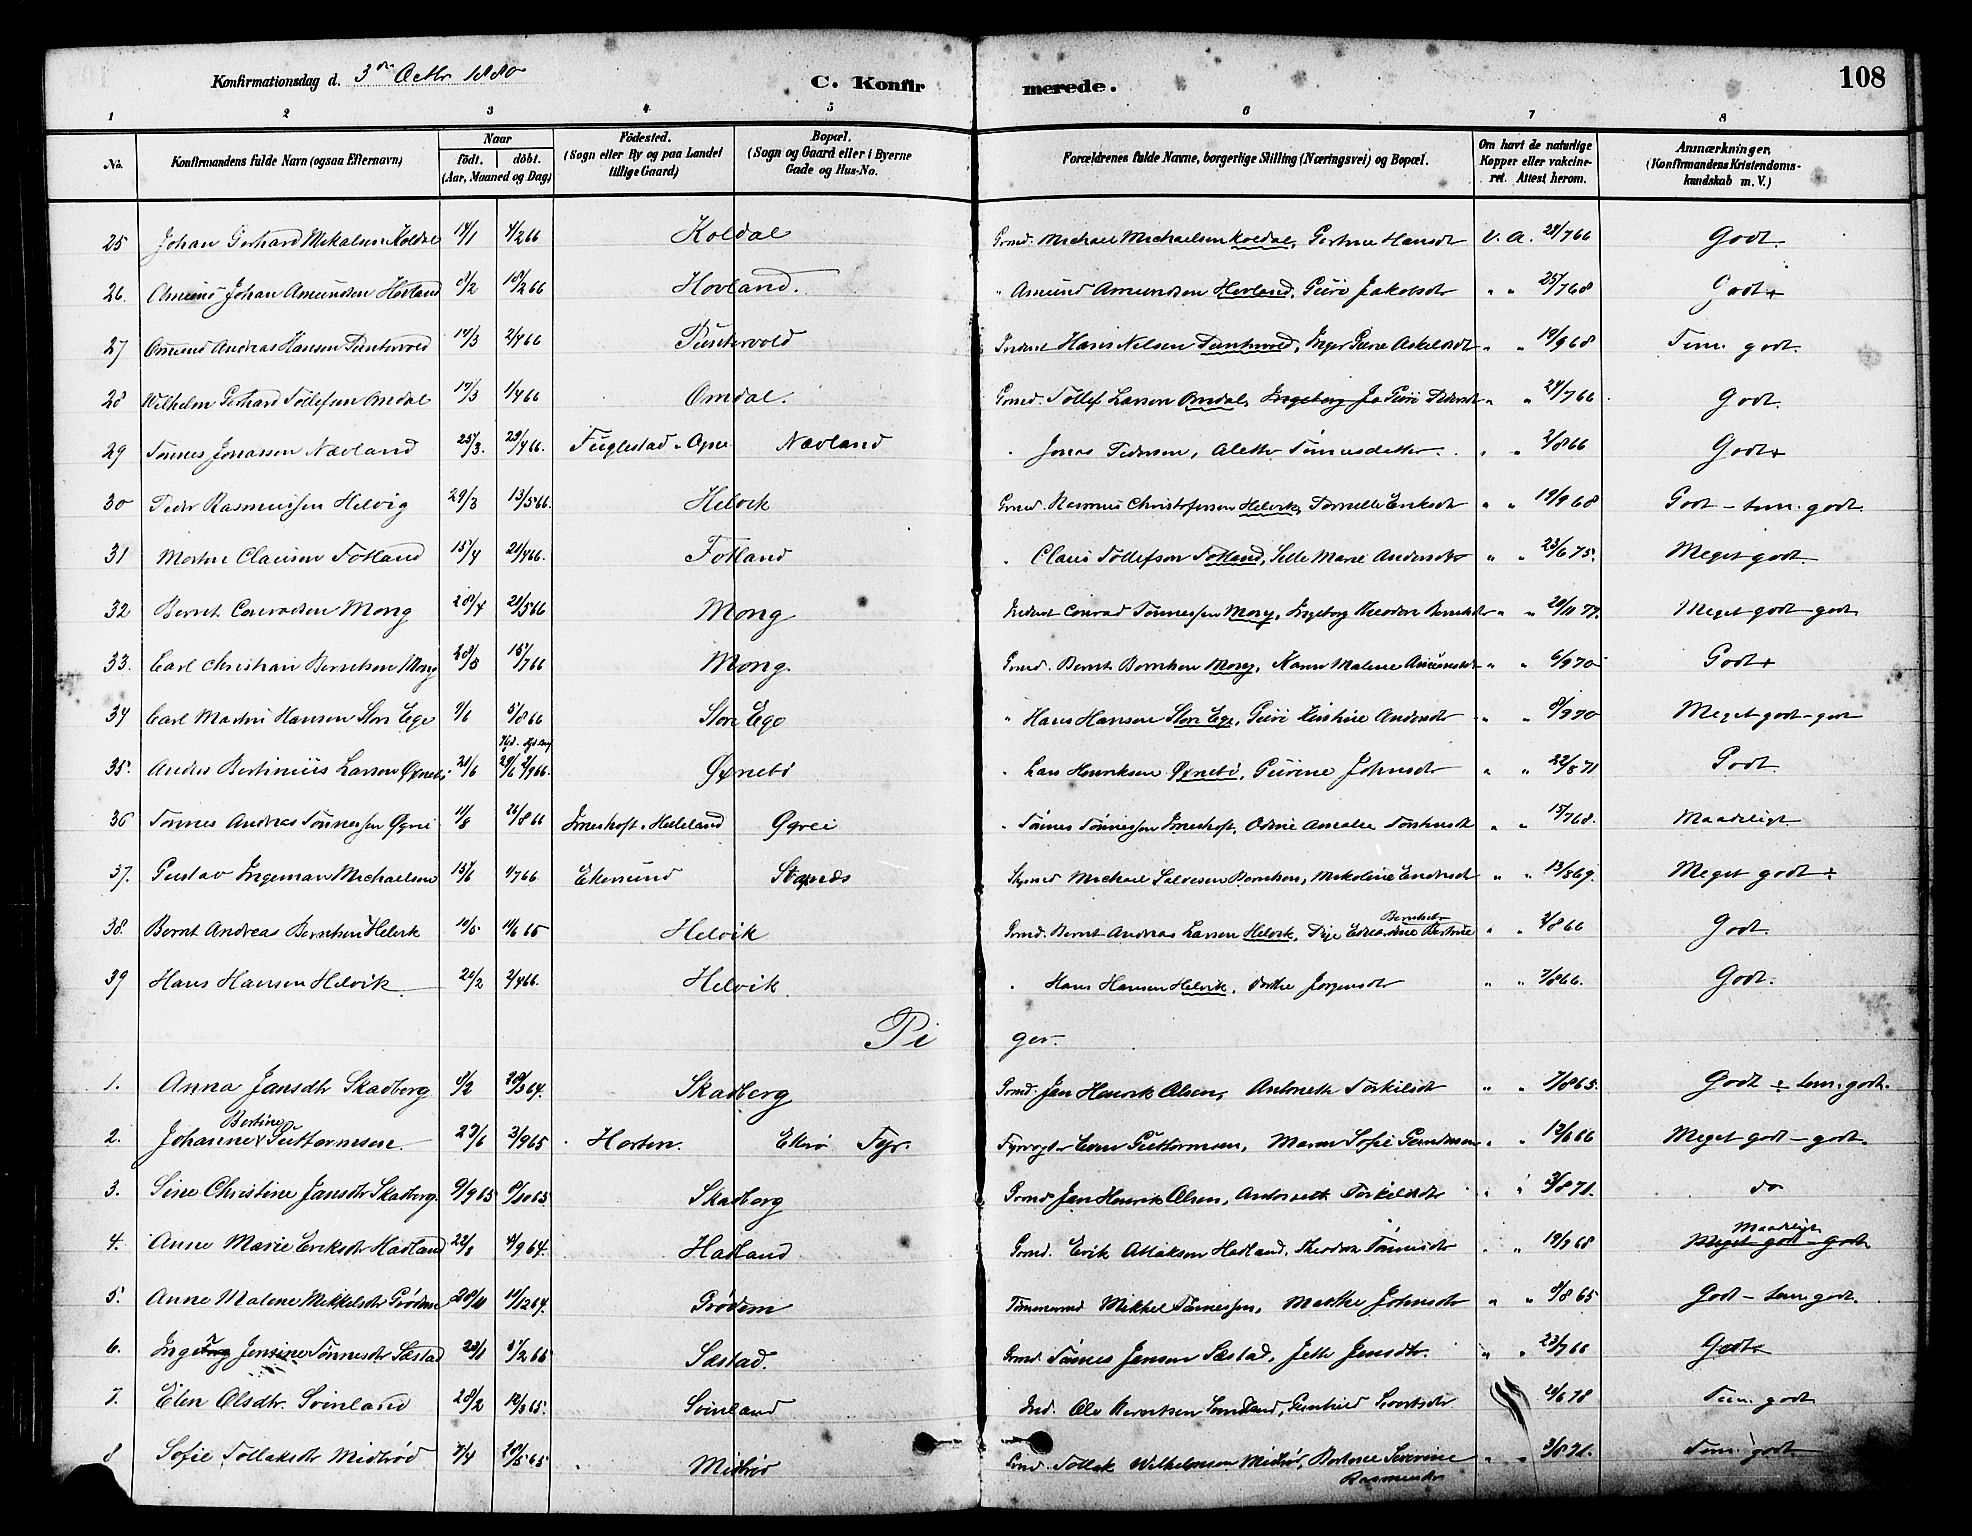 Konfirmationsdag d. 3die Octbr 1880 C. Konfirmerede. 108
1 2 3 4 5 6 7 8
No. Konfirmandens fulde Navn (ogsaa Efternavn) Naar födt. döbt. (Aar, Maaned og Dag) Födested. (Sogn eller By og paa Landet tillige Gaard) Bopæl. (Sogn og Gaard eller i Byerne Gade og Hus-No. Forældrenes fulde Navne, borgerlige Stilling (Næringsvei) og Bopæl. Om havt de naturlige Kopper eller vakcineret. Attest herom. Anmærkninger, (Konfirmandens Kristendomskundskab m. V.)
25 Johan Gerhard Mikalsen Koldal 14/1 4/2 66 Koldal Grmd. Michael Michaelsen Koldal, Gertrue Hansdt V. A. 28/7 66 Godt.
26. Amund Johan Amundsen Hovland 8/2 18/2 66 Hovland. " Amund Amundsen Hovland, Guri Jakobsdt " " 25/7 68 Godt +
27 Omund Andreas Hansen Puntervold 14/3 2/4 66 Puntervold Inderst Hans Nilsen Puntervold, Inger Gurie Askeldsdt " " 19/9 68 Tem. godt.
28 Wilhelm Gerhard Tollefsen Omdal 17/3 1/4 66 Omdal. Grmd. Tollef Larsen Omdal, Ingeborg Jo Guri Pedersdt " " 24/7 66 Godt.
29 Tønnes Jonassen Nævland 25/3. 29/4 66. Fuglestad - Ogne Nævland " Jonas Pedersen, Alethe Tønnesdatter. " " 2/8 66 Godt +
30 Peder Rasmussen Helvig 29/3 13/5 66. Helvik Grmd. Rasmus Christofersen Helvik, Pernelle Eriksdt " " 19/9 68 Godt - tem. godt.
31 Morten Clausen Fotland 15/4 21/4 66. Fotland " Claus Tollefsen Fotland, Selle Marie Andersdtr " " 23/6 75. Meget godt.
32 Bernt Conradsen Mong 28/4 21/5 66 Mong Inderst Conrad Tønnessen Mong, Ingeborg Theodora Berntsdtr " " 20/11 77. Meget godt - godt
33. Carl Christian Berntsen Mong 28/5 15/7 66 Mong. Grmd. Bernt Berntsen Mong, Karen Malene Amundsdt " " 6/9 70 Godt +
34 Carl Martin Hansen Store Ege 9/6 5/8 66 Store Ege " Hans Hansen Store Ege, Guri Kirstine Andersdt " " 8/9 70 Meget godt - godt
35. Andres Bertinius Larsen Øxnebø 21/6 29/6 2/9 66. Øxnebø " Lars Henriksen Øxnebø, Gurine Johnsdt " " 22/8 71 Godt.
36 Tønnes Andreas Tønnessen Øgrei 11/8 26/8 66 Heleland Øgrei " Tønnes Tønnessen, Amalie " " 15/7 68. Maadeligt.
37. Gustav Ingeman Michaelsen 15/6 1/7 66 Ekersund Stapnæs Michael Salvesen Berntsen, Mikoline Endresdt " " 13/8 69. Meget godt ÷
38. Bernt Andreas Berntsen Helvik 10/5 11/6 65 Helvik Grmd. Bernt Andreas Larsen Helvik, Berntsdtr " " 3/8 66 Godt.
39 Hans Hansen Helvik 20/2 2/4 66. Helvik " Hans Hansen Helvik, Dorthe Jørgensdtr " " 7/8 66. Godt.
Piger.
1. Anna Jansdtr Skadberg 8/2 28/3 64. Skadberg Grmd. Jan Henrik Olsen, Antonette Torkilsdt " " 7/8 65. Godt ÷ tem. godt.
2. Johanne Bertine Guttormsen. 23/6 3/9 65 Horten. Ekrø Fyr. Fyrvogter Even Guttormsen, Maren Sofie Gundersen " " 12/6 66 Meget godt - godt.
3. Sine Christine Jansdtr Skadberg. 9/9 65 8/10 65 Skadberg Grmd. Jan Henrik Olsen, Antonette Torkildsdtr " " 3/8 71. do
4. Anne Marie Eriksdtr Hadland 22/8 4/9 64. Hadland Grmd. Erik Atlaksen Hadland, Theodora Tønnesdtr " " 19/9 68 Meget godt - godt Maadeligt
5. Anne Malene Mikkelsdtr Grødem 28/11 11/12 64. Grødem Tømmermd Mikkel Tønnessen, Marthe Johnsdtr " " 9/8 65 Godt - tem. godt.
6. Inger Jensine Tønnesdtr Sæstad 23/1 5/2 65 Sæstad. Grmd. Tønnes Jensen Sæstad, Jette Jensdtr. " " 23/7 66 Godt
7. Elen Olsdtr. Svinland 28/2 12/3 65. Svinland Ind. Ole Berentsen Svinland, Gunhild Sivertsdtr 20/6 78 Tem. godt
8 Sofie Tollaksdtr Midbrød 7/4 28/5 65 Midbrød Grmd. Tollak Wilhelmsen Midbrød, Bertine Severine Rasmusdtr " " 3/8 71. Tem. godt